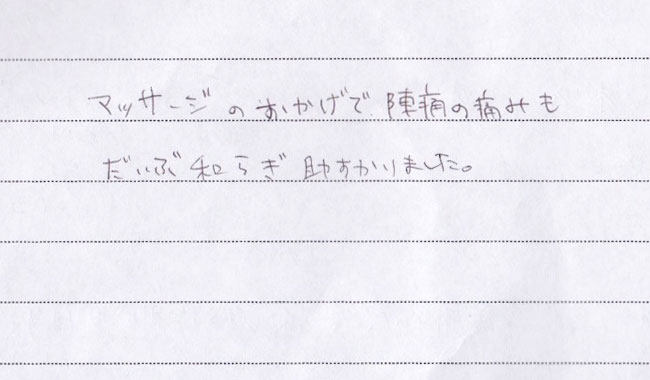 マッサージのおかげで陣痛の痛みも
だいぶ和らぎ助すかりました。